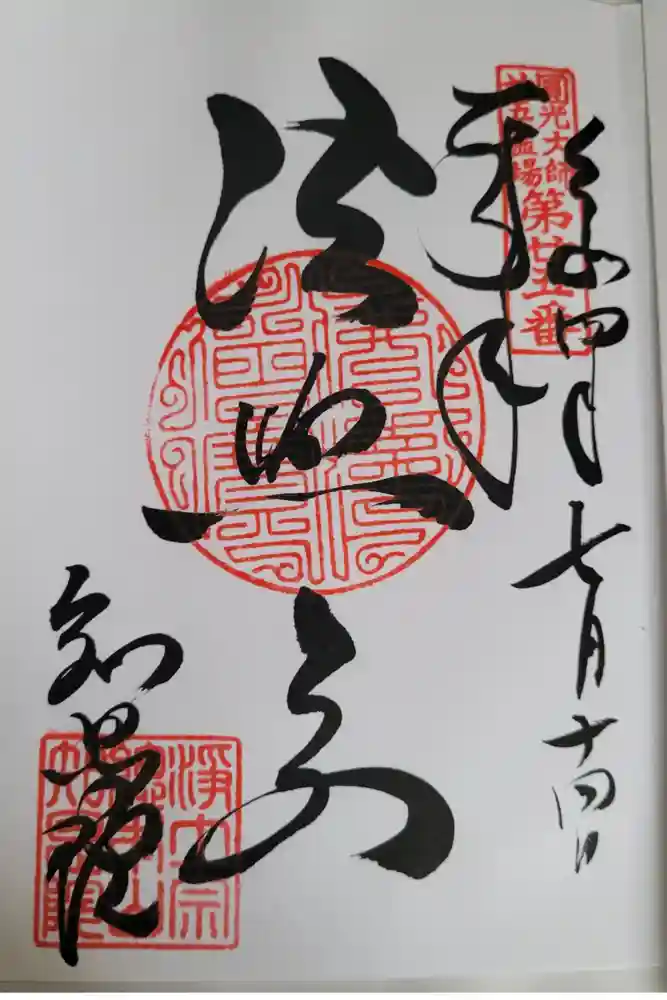 圓光大師
廿五霊場
第廿五番
令和四年七月十四日
奉拝
法然
知恩院
淨土宗
總本山
知恩院